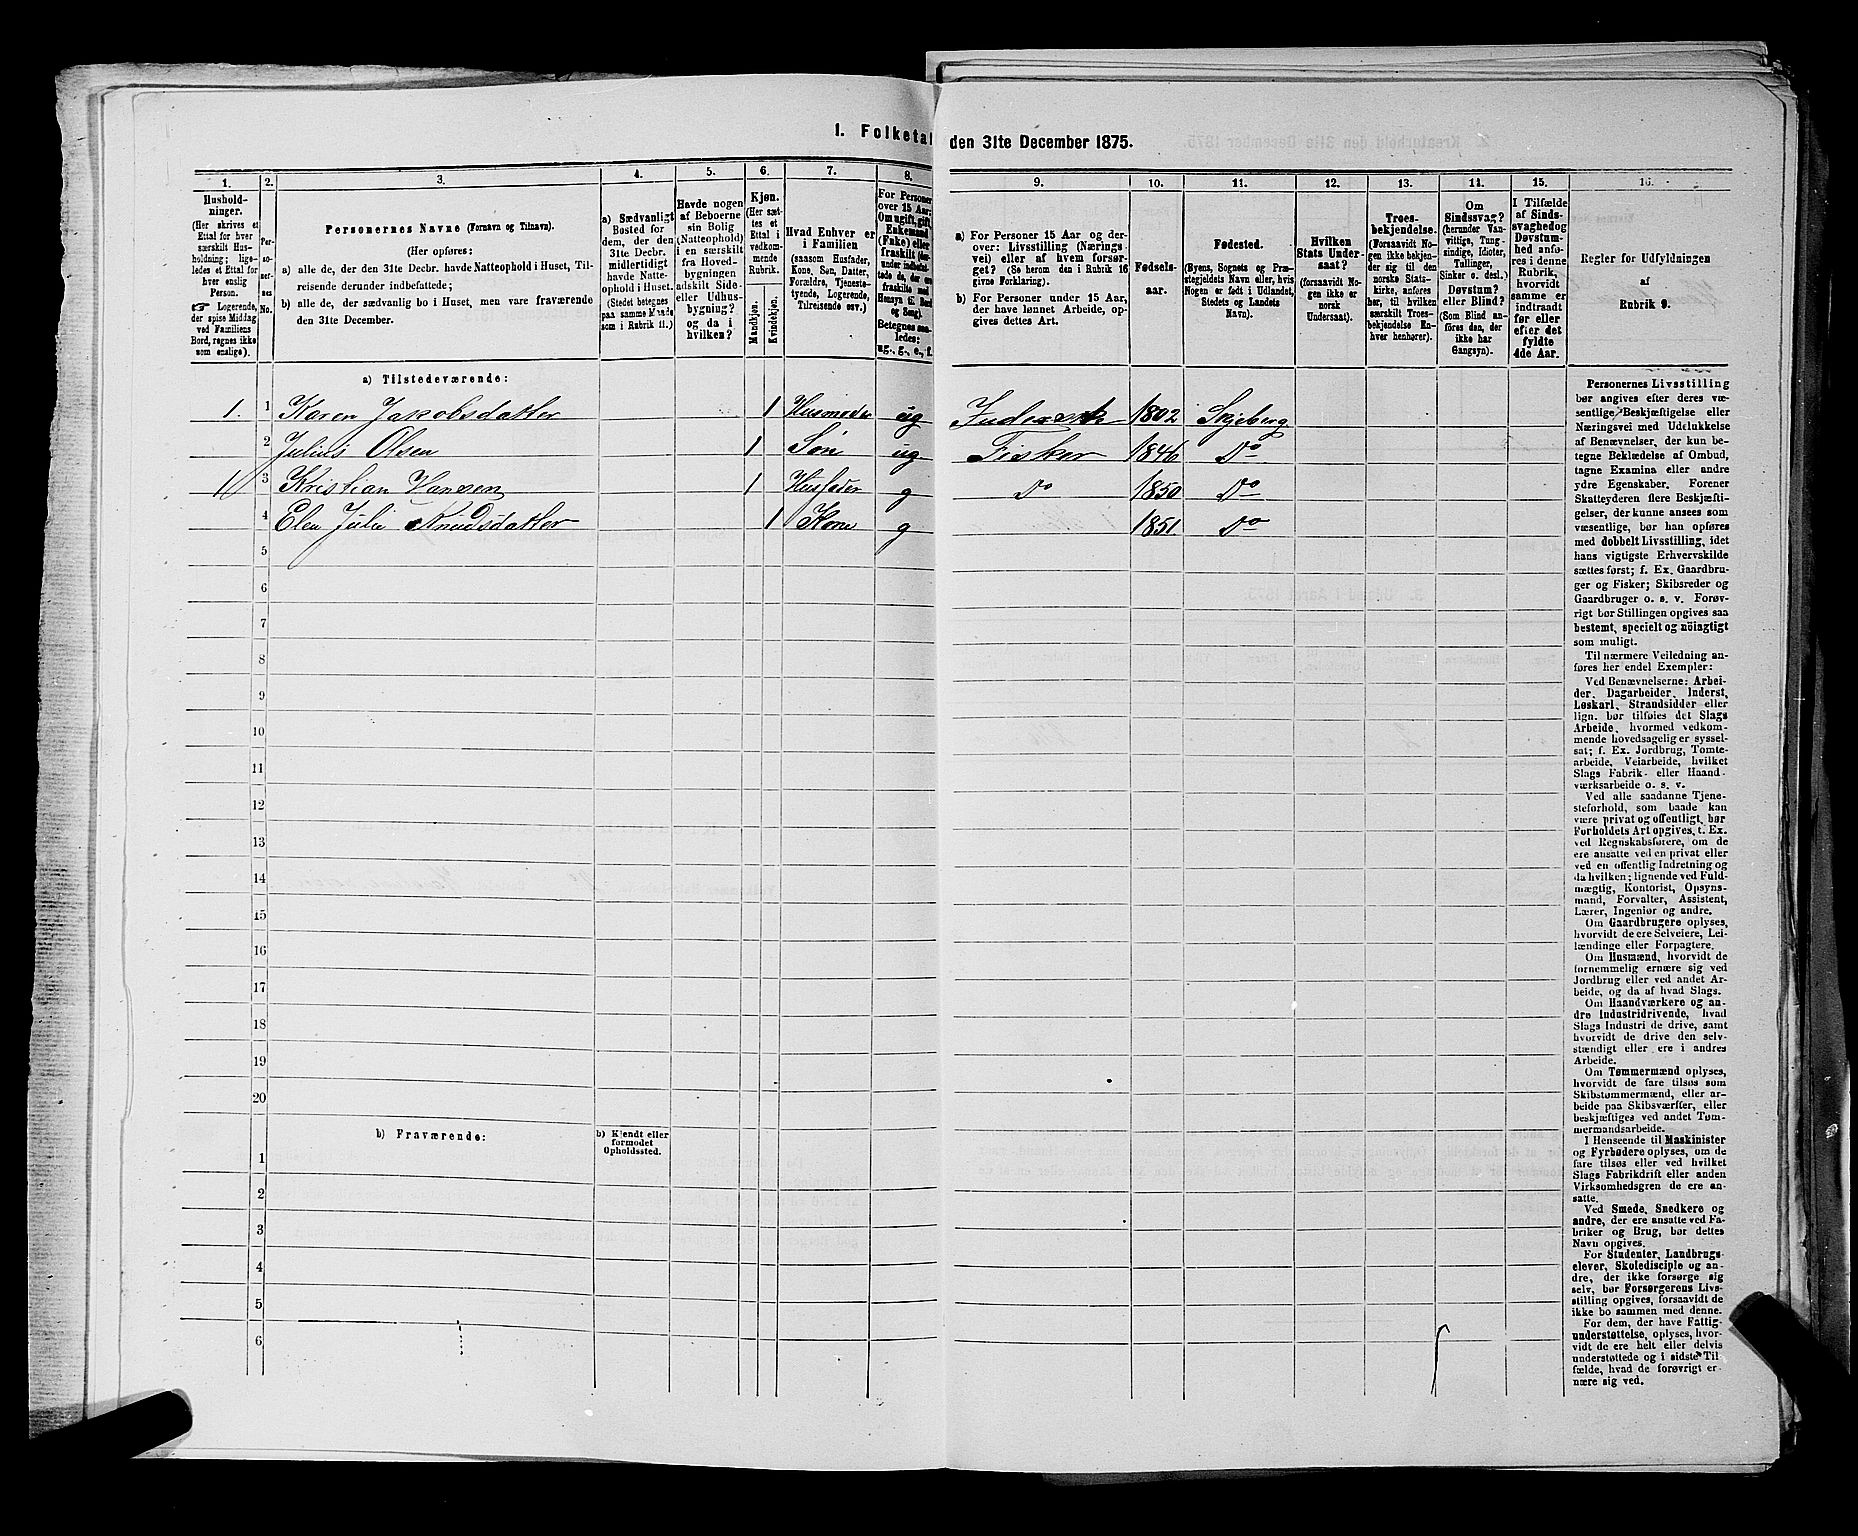 1. Folketal
den 31te December 1875.
1.
2.
3.
4.
5.
6.
7.
8.
9.
10.
11.
12.
13.
14.
15.
16.
Hushold-
ninger.
(Her skrives et
Ettal for hver
særskilt Hus-
holdning; lige-
ledes et Ettal for
hver enslig
Person.
☞ Logerende,
der spise Middag
ved Familiens
Bord, regnes ikke
som enslige).
Per-
soner-
nes
No.
Personernes Navne (Fornavn og Tilnavn).
(Her opføres:
a) alle de, der den 31te Decbr. havde Natteophold i Huset, Til-
reisende derunder indbefattede;
b) alle de, der sædvanlig bo i Huset, men vare fraværende
den 31te December.
a) Sædvanligt
Bosted for
dem, der den
31te Decbr.
midlertidigt
havde Natte-
ophold i Huset.
(Stedet betegnes
paa samme Maade
som i Rubrik 11.)
Havde nogen
af Beboerne
sin Bolig
(Natteophold)
i en særskilt
fra Hoved-
bygningen
adskilt Side-
eller Udhus-
bygning?
og da i
hvilken?
Kjøn.
(Her sæt-
tes et
Ettal i
vedkom-
mende
Rubrik.
Mandkjøn.
Kvindekjøn.
Hvad Enhver er
i Familien
(saasom Husfader,
Kone, Søn, Datter,
Forældre, Tjeneste-
tyende, Logerende,
Tilreisende osv.)
For Personer
over 15 Aar:
Om ugift, gift,
Enkemand
(Enke) eller
fraskilt
Betegnes saa-
ledes:
ug., g., e., f.
a) For Personer 15 Aar og der-
over: Livsstilling (Nærings-
vei) eller af hvem forsør-
get? (Se herom den i Rubrik 16
givne Forklaring).
b) For Personer under 15 Aar,
der have lønnet Arbeide, op-
gives dettes Art.
Fødsels-
aar.
Fødested.
(Byens, Sognets og Præ-
stegjeldets Navn eller, hvis
Nogen er født i Udlandet,
Stedets og Landets
Navn).
Hvilken
Stats Under-
saat?
(forsaavidt No-
gen ikke er
norsk
Undersaat).
Troes-
bekjendelse.
(Forsaavidt No-
gen ikke bekjen-
der sig til den
norske Stats-
kirke, anføres
her, til hvilken
særskilt Troes-
bekjendelse En-
hver henhører).
Om
Sindssvag?
(herunder Van-
vittige, Tung-
sindige, Idioter,
Tullinger,
Sinker o. desl.)
Døvstum?
eller Blind?
(Som Blind an-
føres den, der
ikke har
Gangsyn).
I Tilfælde
af Sinds-
svaghed og
Døvstum-
hed anfø-
res i denne
Rubrik,
hvorvidt
samme er
indtraadt
før eller
efter det
fyldte
4de Aar.
Regler for Udfyldningen
af
Rubrik 9.
a) Tilstedeværende:
1. 1 Karen Jakobsdatter 1 Husmoder ug 1802 Skjeberg
2 Julius Olsen 1 Søn ug Fisker 1846 Do
1 3 Kristian Hansen 1 Husfader g Do 1850 Do
4 Elen Julie Knudsdatter 1 Kone g 1851. Do
5
6
7
8
9
10
11
12
13
14
15
16
17
18
19
20
b) Fraværende:
b) Kjendt eller
formodet
Opholdssted.
1
2
3
4
5
6
Personernes Livsstilling
bør angives efter deres væ-
sentlige Beskjæftigelse eller
Næringsvei med Udelukkelse
af Benævnelser, der kun be-
tegne Beklædelse af Ombud,
tagne Examina eller andre
ydre Egenskaber. Forener
Skatteyderen flere Beskjæfti-
gelser, der kunne ansees som
væsentlige, bør han opføres
med dobbelt Livsstilling, idet
hans vigtigste Erhvervskilde
sættes først; f. Ex. Gaardbru-
ger og Fisker; Skibsreder og
Gaardbruger o. s. v. Forøv-
rigt bør Stillingen opgives saa
bestemt, specielt og nöiagtigt
som muligt.
Til nærmere Veiledning an-
føres her endel Exempler:
Ved Benævnelserne: Arbei-
der, Dagarbeider, Inderst,
Løskarl, Strandsidder eller
lign. bør tilføies det Slags
Arbeide, hvormed vedkom-
mende hovedsagelig er syssel-
sat; f. Ex. Jordbrug, Tomte-
arbeide, Veiarbeide, hvilket
Slags Fabrik- eller Haand-
værksarbeide o. s. v.
Ved alle saadanne Tjene-
steforhold, som baade kan
være privat og offentligt, bør
Forholdets Art opgives, t. Ex.
ved Regnskabsførere, om de
ere ansatte ved en privat eller
ved en offentlig Indretning og
da hvilken; lignende ved Fuld-
mægtig, Kontorist, Opsyns-
mand, Forvalter, Assistent,
Lærer, Ingeniør og andre.
Om Gaardbrugere oplyses,
hvorvidt de ere Selveiere, Lei-
lændinge eller Forpagtere.
Om Husmænd, hvorvidt de
fornemmelig ernære sig ved
Jordbrug eller ved andet Ar-
beide, og da af hvad Slags.
Om Haandværkere og an-
dre Industridrivende, hvad
Slags Industri de drive, samt
hvorvidt de drive den selv-
stændigt eller ere i andres
Arbeide.
Om Tømmermænd oplyses,
hvorvidt de fare tilsøs som
Skibstømmermænd, eller ar-
beide paa Skibsværfter, eller
beskjæftiges ved andet Tøm-
mermandsarbeide.
I Henseende til Maskinister
og Fyrbødere oplyses, om de
fare tilsøs eller ved hvilket
Slags Fabrikdrift eller anden
Virksomhedsgren de ere an-
satte.
Ved Smede, Snedkere og
andre, der ere ansatte ved Fa-
briker og Brug, bør dettes
Navn opgives.
For Studenter, Landbrugs-
elever, Skoledisciple og an-
dre, der ikke forsørge sig
selv, bør Forsørgerens Livs-
stilling opgives, forsaavidt de
ikke bo sammen med denne.
For dem, der have Fattig-
understøttelse, oplyses, hvor-
vidt de ere helt eller delvis
understøttede og i sidste Til-
fælde, hvad de forøvrigt er-
nære sig ved.